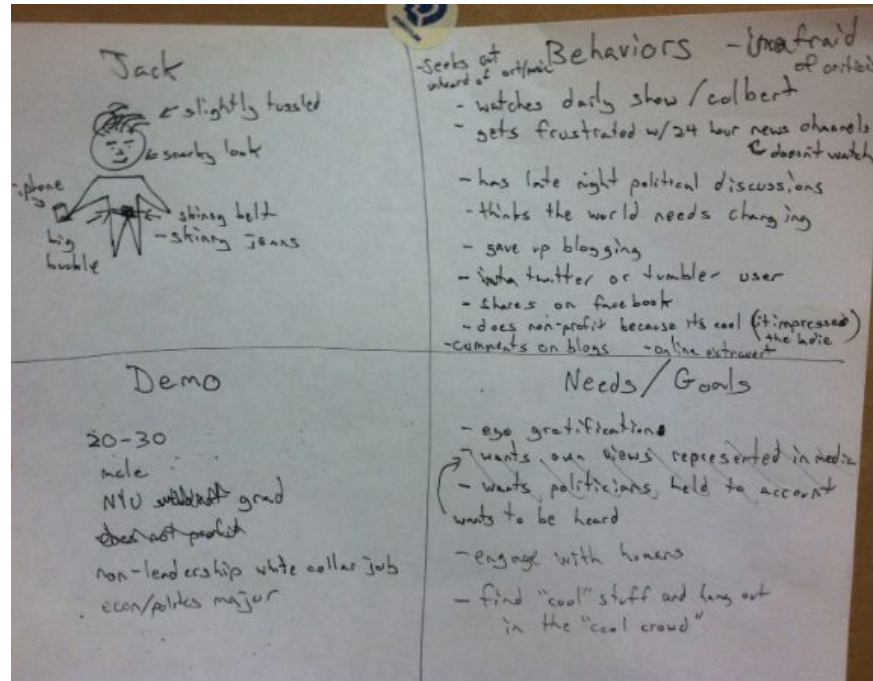 Jack
slightly tussled
snarky look
iphone
skinny belt
- skinny jeans
big
buckle
Behaviors
- Seeks out
unheard of art/music
afraid
of
- watches daily show / colbert
- gets frustrated w/ 24 hour news channels
doesn't watch
- has late night political discussions
- thinks the world needs changing
- gave up blogging
- twitter or tumbler user
- shares on facebook
- does non-profit because its cool (it impresses
the ladie
- comments on blogs - online extravert
Demo
20-30
male
NYU grad
does not profit
non-leadership white collar job
econ/politcs major
Needs/Goals
- ego gratification
- wants own views represented in media
- wants politicians held to account
wants to be heard
- engage with humans
- find "cool" stuff and hang out
in the "cool crowd"